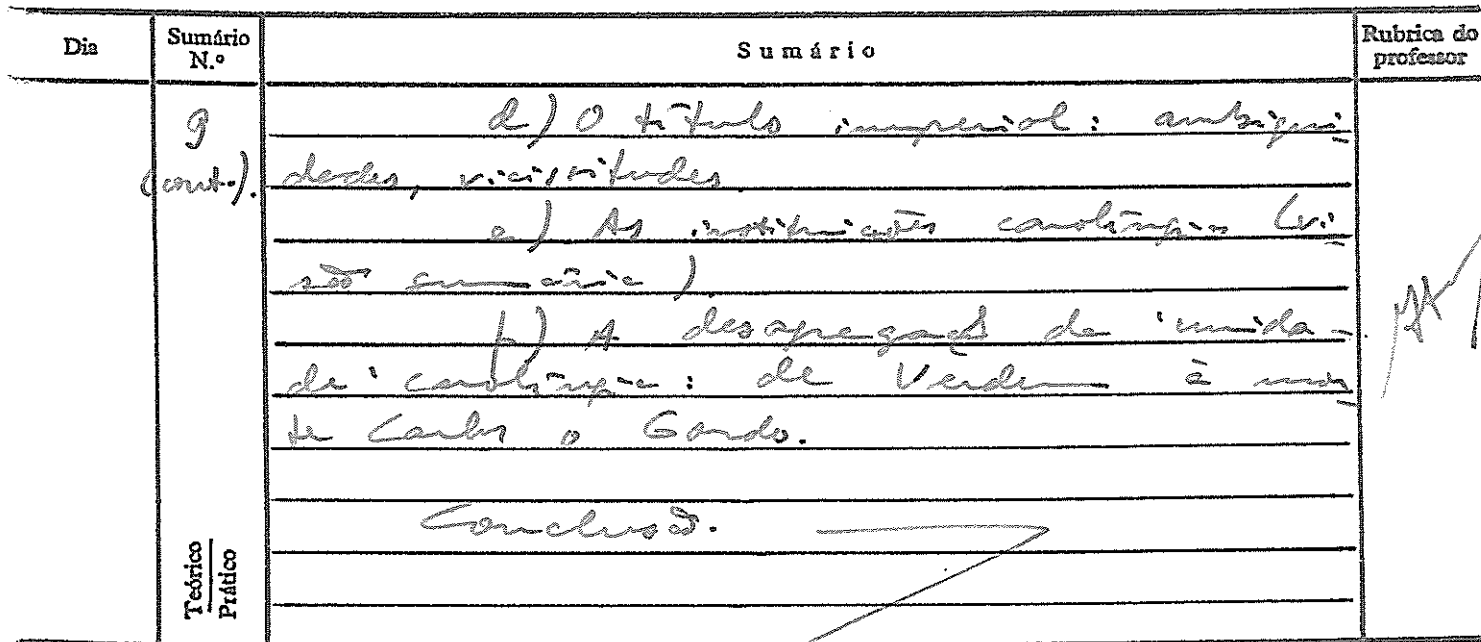 Dia Sumário N.º Sumário Rubrica do professor
9 d) O título imperial: ambigui
(cont.). dades, vicissitudes.
e) As instituições carolíngias (vi
são sumária).
f) A desagregação da 'unida-
de' carolíngia: de Verdun à mor
te Carlos o Gordo.
Conclusão.
Teórico
Prático